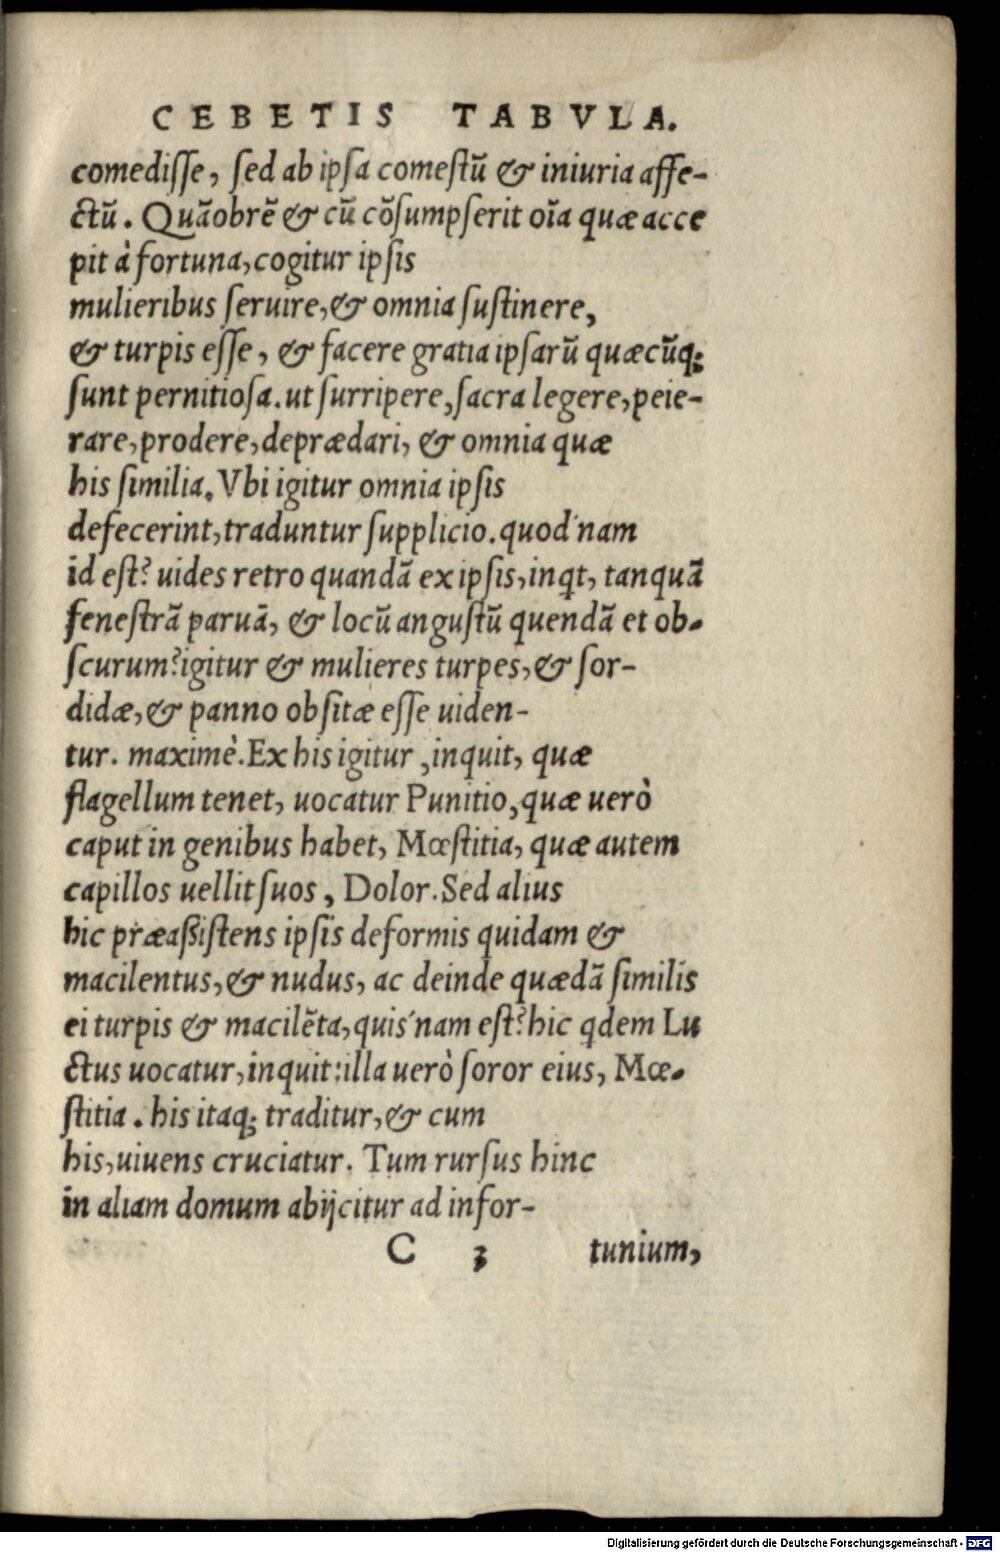 CEBETIS TABVLA.
comedisse, sed ab ipsa comestũ & iniuria affe-
ctũ. Quãobrẽ & cũ cõsumpserit oĩa quæ acce
pit à fortuna, cogitur ipsis
mulieribus seruire, & omnia sustinere,
& turpis esse, & facere gratia ipsarũ quæcũq;
sunt pernitiosa. ut surripere, sacra legere, peie-
rare, prodere, deprædari, & omnia quæ
his similia. Vbi igitur omnia ipsis
defecerint, traduntur supplicio. quod'nam
id est? uides retro quandã ex ipsis, inqt, tanquã
fenestrã paruã, & locũ angustũ quendã et ob-
scurum? igitur & mulieres turpes, & sor-
didæ, & panno obsitæ esse uiden-
tur. maximè. Ex his igitur, inquit, quæ
flagellum tenet, uocatur Punitio, quæ uerò
caput in genibus habet, Mœstitia, quæ autem
capillos uellit suos, Dolor. Sed alius
hic præaßistens ipsis deformis quidam &
macilentus, & nudus, ac deinde quædã similis
ei turpis & macilẽta, quis'nam est? hic qdem Lu
ctus uocatur, inquit: illa uerò soror eius, Mœ-
stitia. his itaq; traditur, & cum
his, uiuens cruciatur. Tum rursus hinc
in aliam domum abijcitur ad infor-
C 3 tunium,
Digitalisierung gefördert durch die Deutsche Forschungsgemeinschaft - DFG